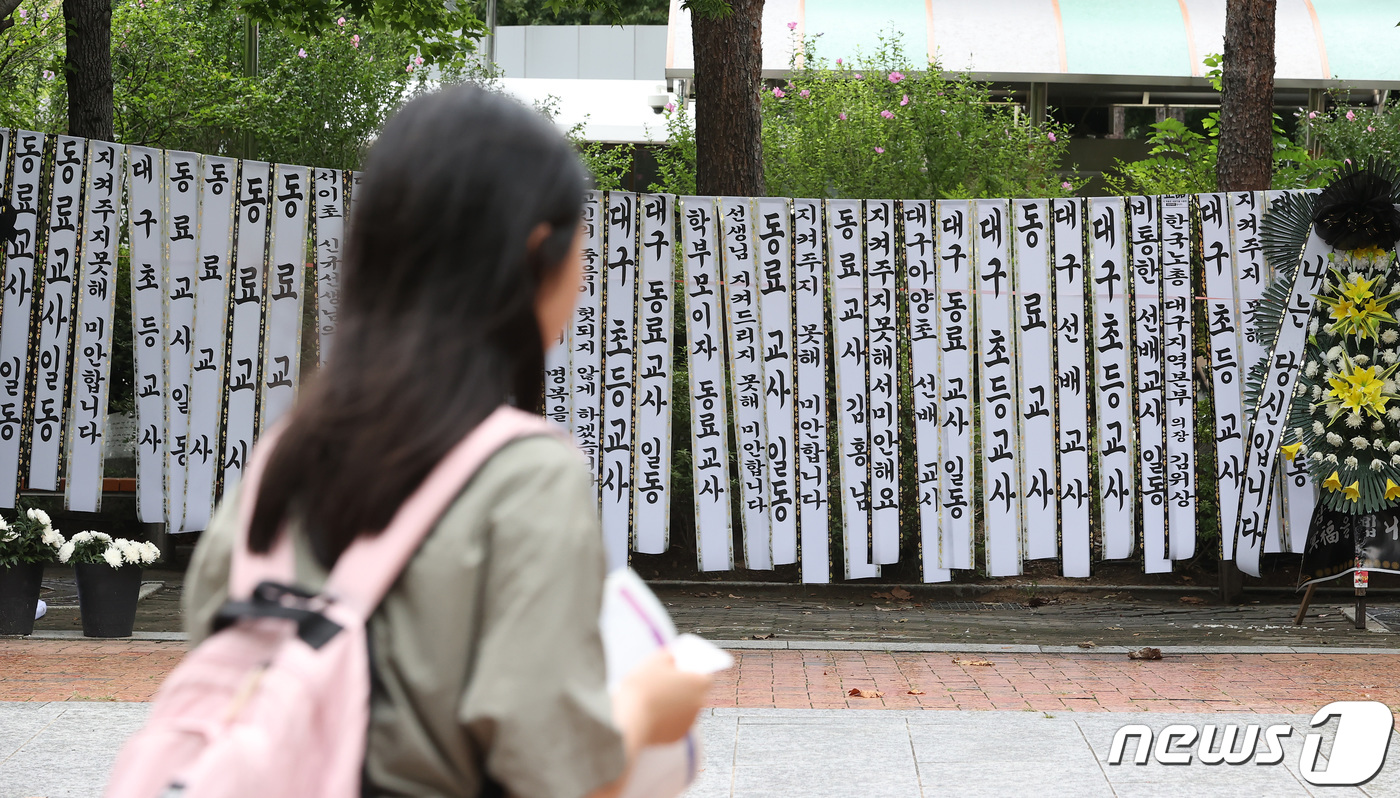 동료교사 일동
동료교사일동
지켜주지못해 미안합니다
대구 초등교사
동료교사일동
동료교사
동료교사
동료교사
서이초 신규선생님의
명복을
죽음이 헛되지 않게 하겠습니다
대구 초등교사
대구 동료교사 일동
학부모이자 동료교사
선생님 지켜드리지 못해 미안합니다
동료교사일동
지켜주지 못해 미안합니다
동료교사 김황남
지켜주지못해서미안해요
대구아양초 선배교사
대구동료교사일동
대구 초등교사
동료 교사
대구선배교사
대구초등교사
비통한 선배교사일동
한국노총 대구지역본부 의장 김위상
대구초등교사
지켜주지 못해
는 당신입니다
news1